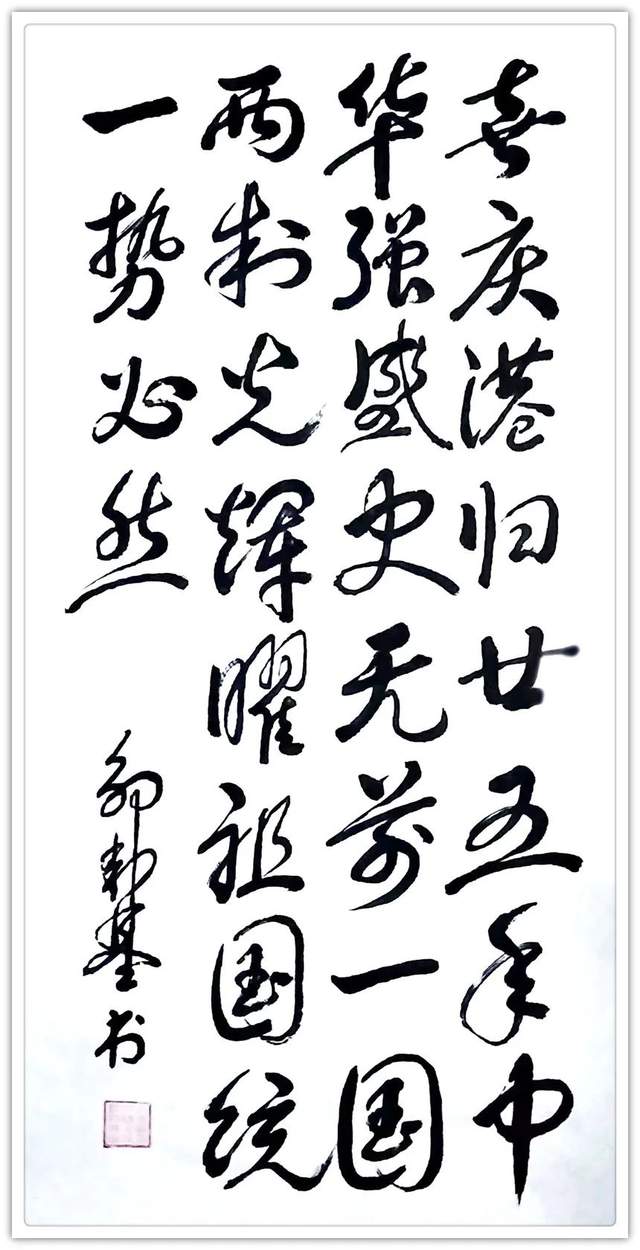 喜庆港归廿五年中
华强盛史无前一国
两制光辉曜祖国统
一势必然
邹勃基书